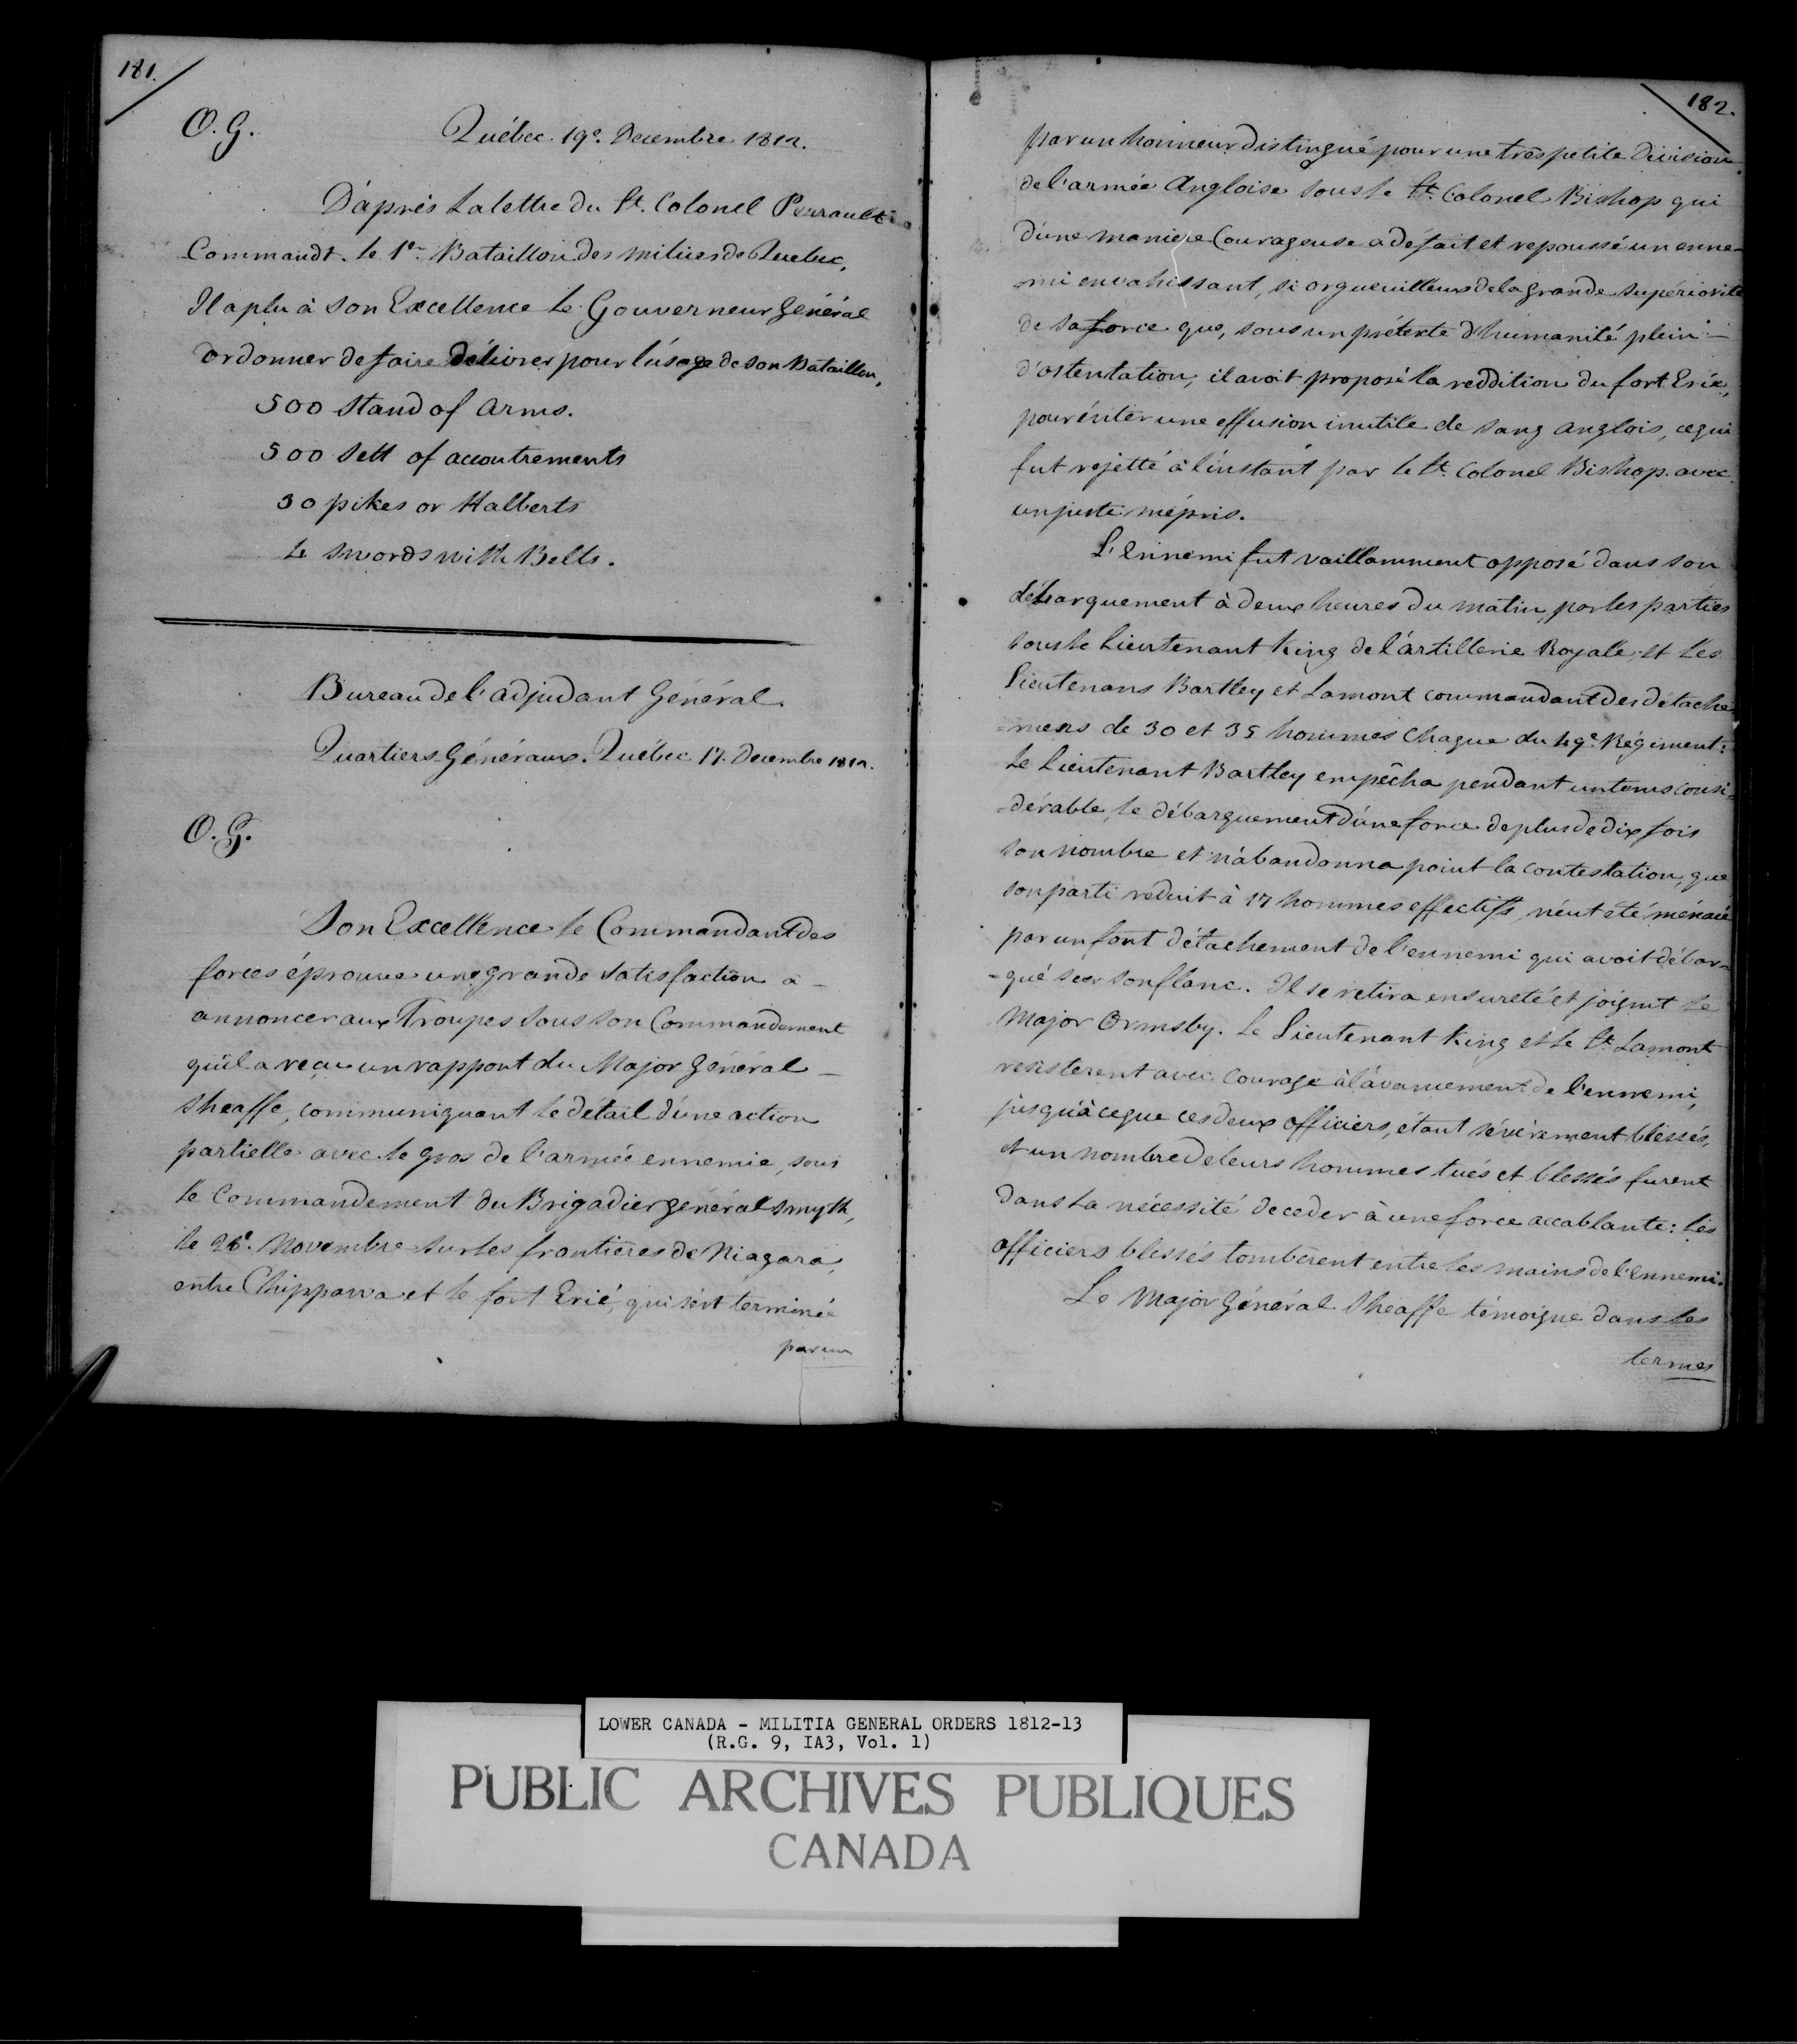 181.
O. G.
Québec 19e. Decembre 1812.
D'après la lettre du Lt. Colonel Perrault
Commandt. le 1er Bataillon des milices de Quebec,
Il a plu à Son Excellence le Gouverneur Général
ordonner de faire délivrer pour l'úsage de son Bataillon,
500 Stand of Arms.
500 Sett of accoutrements
30 pikes or Halberts
4 swords with Belts.
Bureau de l'adjudant Général
Quartiers Généraux. Québec 17. Decembre 1812.
O. G.
Son Excellence le Commandant des
forces éprouve une grande satisfaction à -
annoncer aux Troupes sous son Commandement
qu'il a reçu un rapport du Major Général -
Sheaffe, communiquant le détail d'une action
partielle avec le gros de l'armée ennemie, sous
le Commandement du Brigadier général Smyth,
le 28e. Novembre sur les frontières de Niagara,
entre Chippawa et le fort Erié, qui s'est terminée
par un
182.
par un honneur distingué pour une très petite division
de l'armée Angloise sous le Lt. Colonel Bishop qui
d'une maniere Courageuse a défait et repoussé un enne-
-mi envahissant, si orgueuilleux de la grande supériorité
de sa force que, sous un prétexte d'humanité plein -
d'ostentation, il avoit proposé la reddition du fort Erié,
pour éviter une effusion inutile de sang anglois, ce qui
fut rejetté à l'instant par le Lt. Colonel Bishop. avec
un juste mépris.
L'Ennemi fut vaillamment opposé dans son
débarquement à deux heures du matin, par les parties
sous le Lieutenant King de l'artillerie Royale, et les
Lieutenans Bartley et Lamont commandant des détache
-mens de 30 et 35 hommes Chaque du 49e. Régiment:
Le Lieutenant Bartley empêcha pendant un tems consi-
-dérable, le débarquement d'une force de plus de dix fois
son nombre et n'abandonna point la contestation, que
son parti réduit à 17 hommes effectifs, n'eut été ménacé
par un fort détachement de l'ennemi qui avoit débar-
-qué sur son flanc. Il se retira en sureté et joignit le
Major Ormsby. Le Lieutenant King et le Lt. Lamont
résisterent avec courage à l'avancement de l'ennemi,
jusqu'à ce que ces deux officiers, étant sévèrement blessés,
et un nombre de leurs hommes tués et blessés furent
dans la nécessité de ceder à une force accablante: les
officiers blessés tombèrent entre les mains de l'Ennemi.
Le Major Général Sheaffe témoigne dans les
termes
LOWER CANADA - MILITIA GENERAL ORDERS 1812-13
(R.G. 9, IA3, Vol. 1)
PUBLIC ARCHIVES PUBLIQUES
CANADA